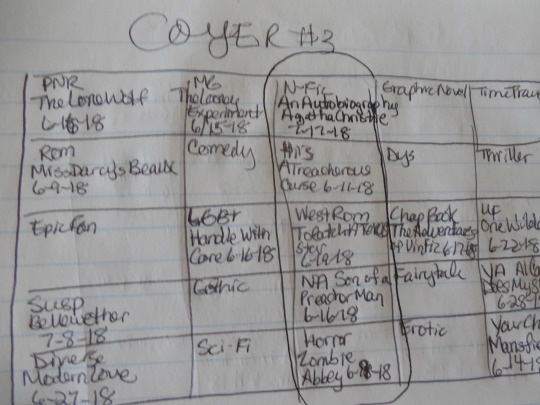 COYER #3
PNR
The Lone Wolf
6-18-18
MG
The Looney
Experiment
6/15-18
N-Fic
An Autobiography
Agatha Christie
7-12-18
Graphic Novel
Time Trav
Rom
Miss Darcy's Beaux
6-9-18
Comedy
His
A Treacherous
Curse 6-11-18
Dys
Thriller
Epic Fan
LGBT
Handle With
Care 6-16-18
West Rom
6-19-18
Chap Book
The Adventures
of Vin Fiz 6-17-18
UF
One Wild
6-22-18
Susp
Bellewether
7-8-18
Gothic
NA Son of a
Preacher Man
6-16-18
Fairytale
YA
6-28-1
Diverse
Modern Love
6-27-18
Sci-Fi
Horror
Zombie
Abbey 6-8-18
Erotic
Your Ch
Mansfie
6-14-18